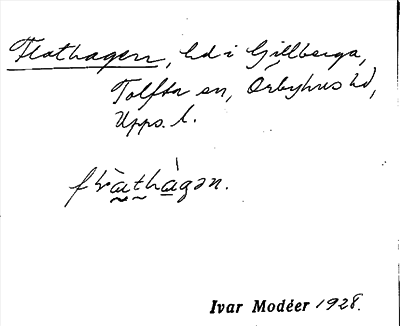 Flathagen, hd i Gillberga,
Tolfta sn, Örbyhus hd,
Upps. l.
Ivar Modéer 1928.